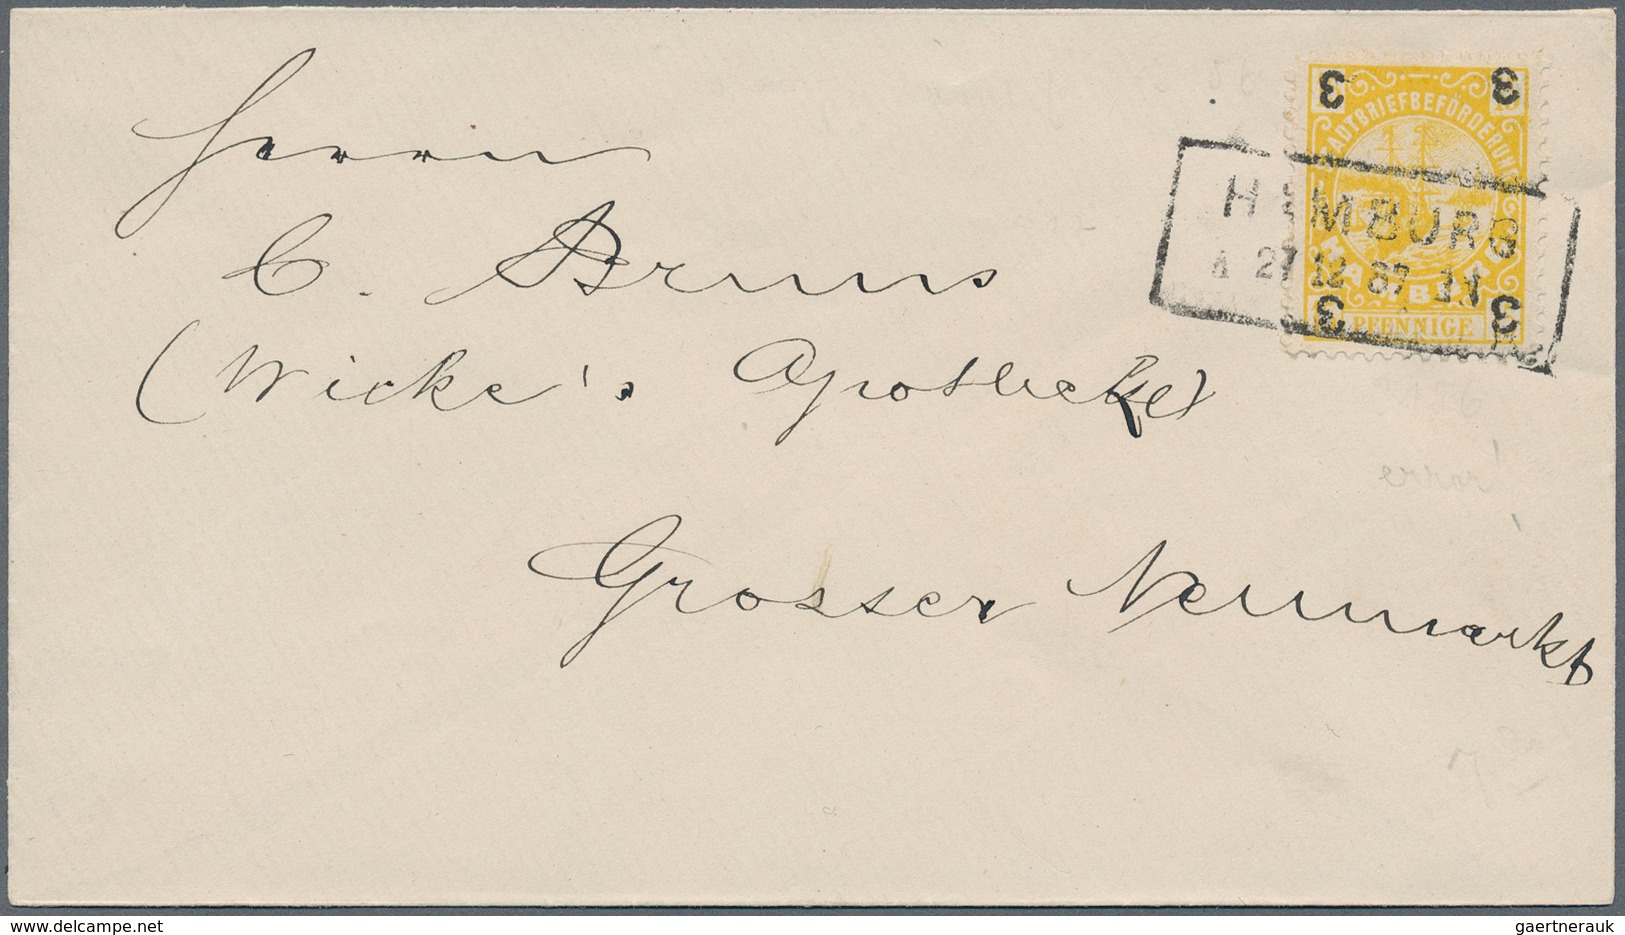 Herrn
C. Bruns
(Wicke's Apotheke)
Grosser Neumarkt
3 3
STADTBRIEFBEFÖRDERUNG
HAMBURG
27 12 87
HAMBURG
3 3
PFENNIGE
delcampe.net
gaertnerauk